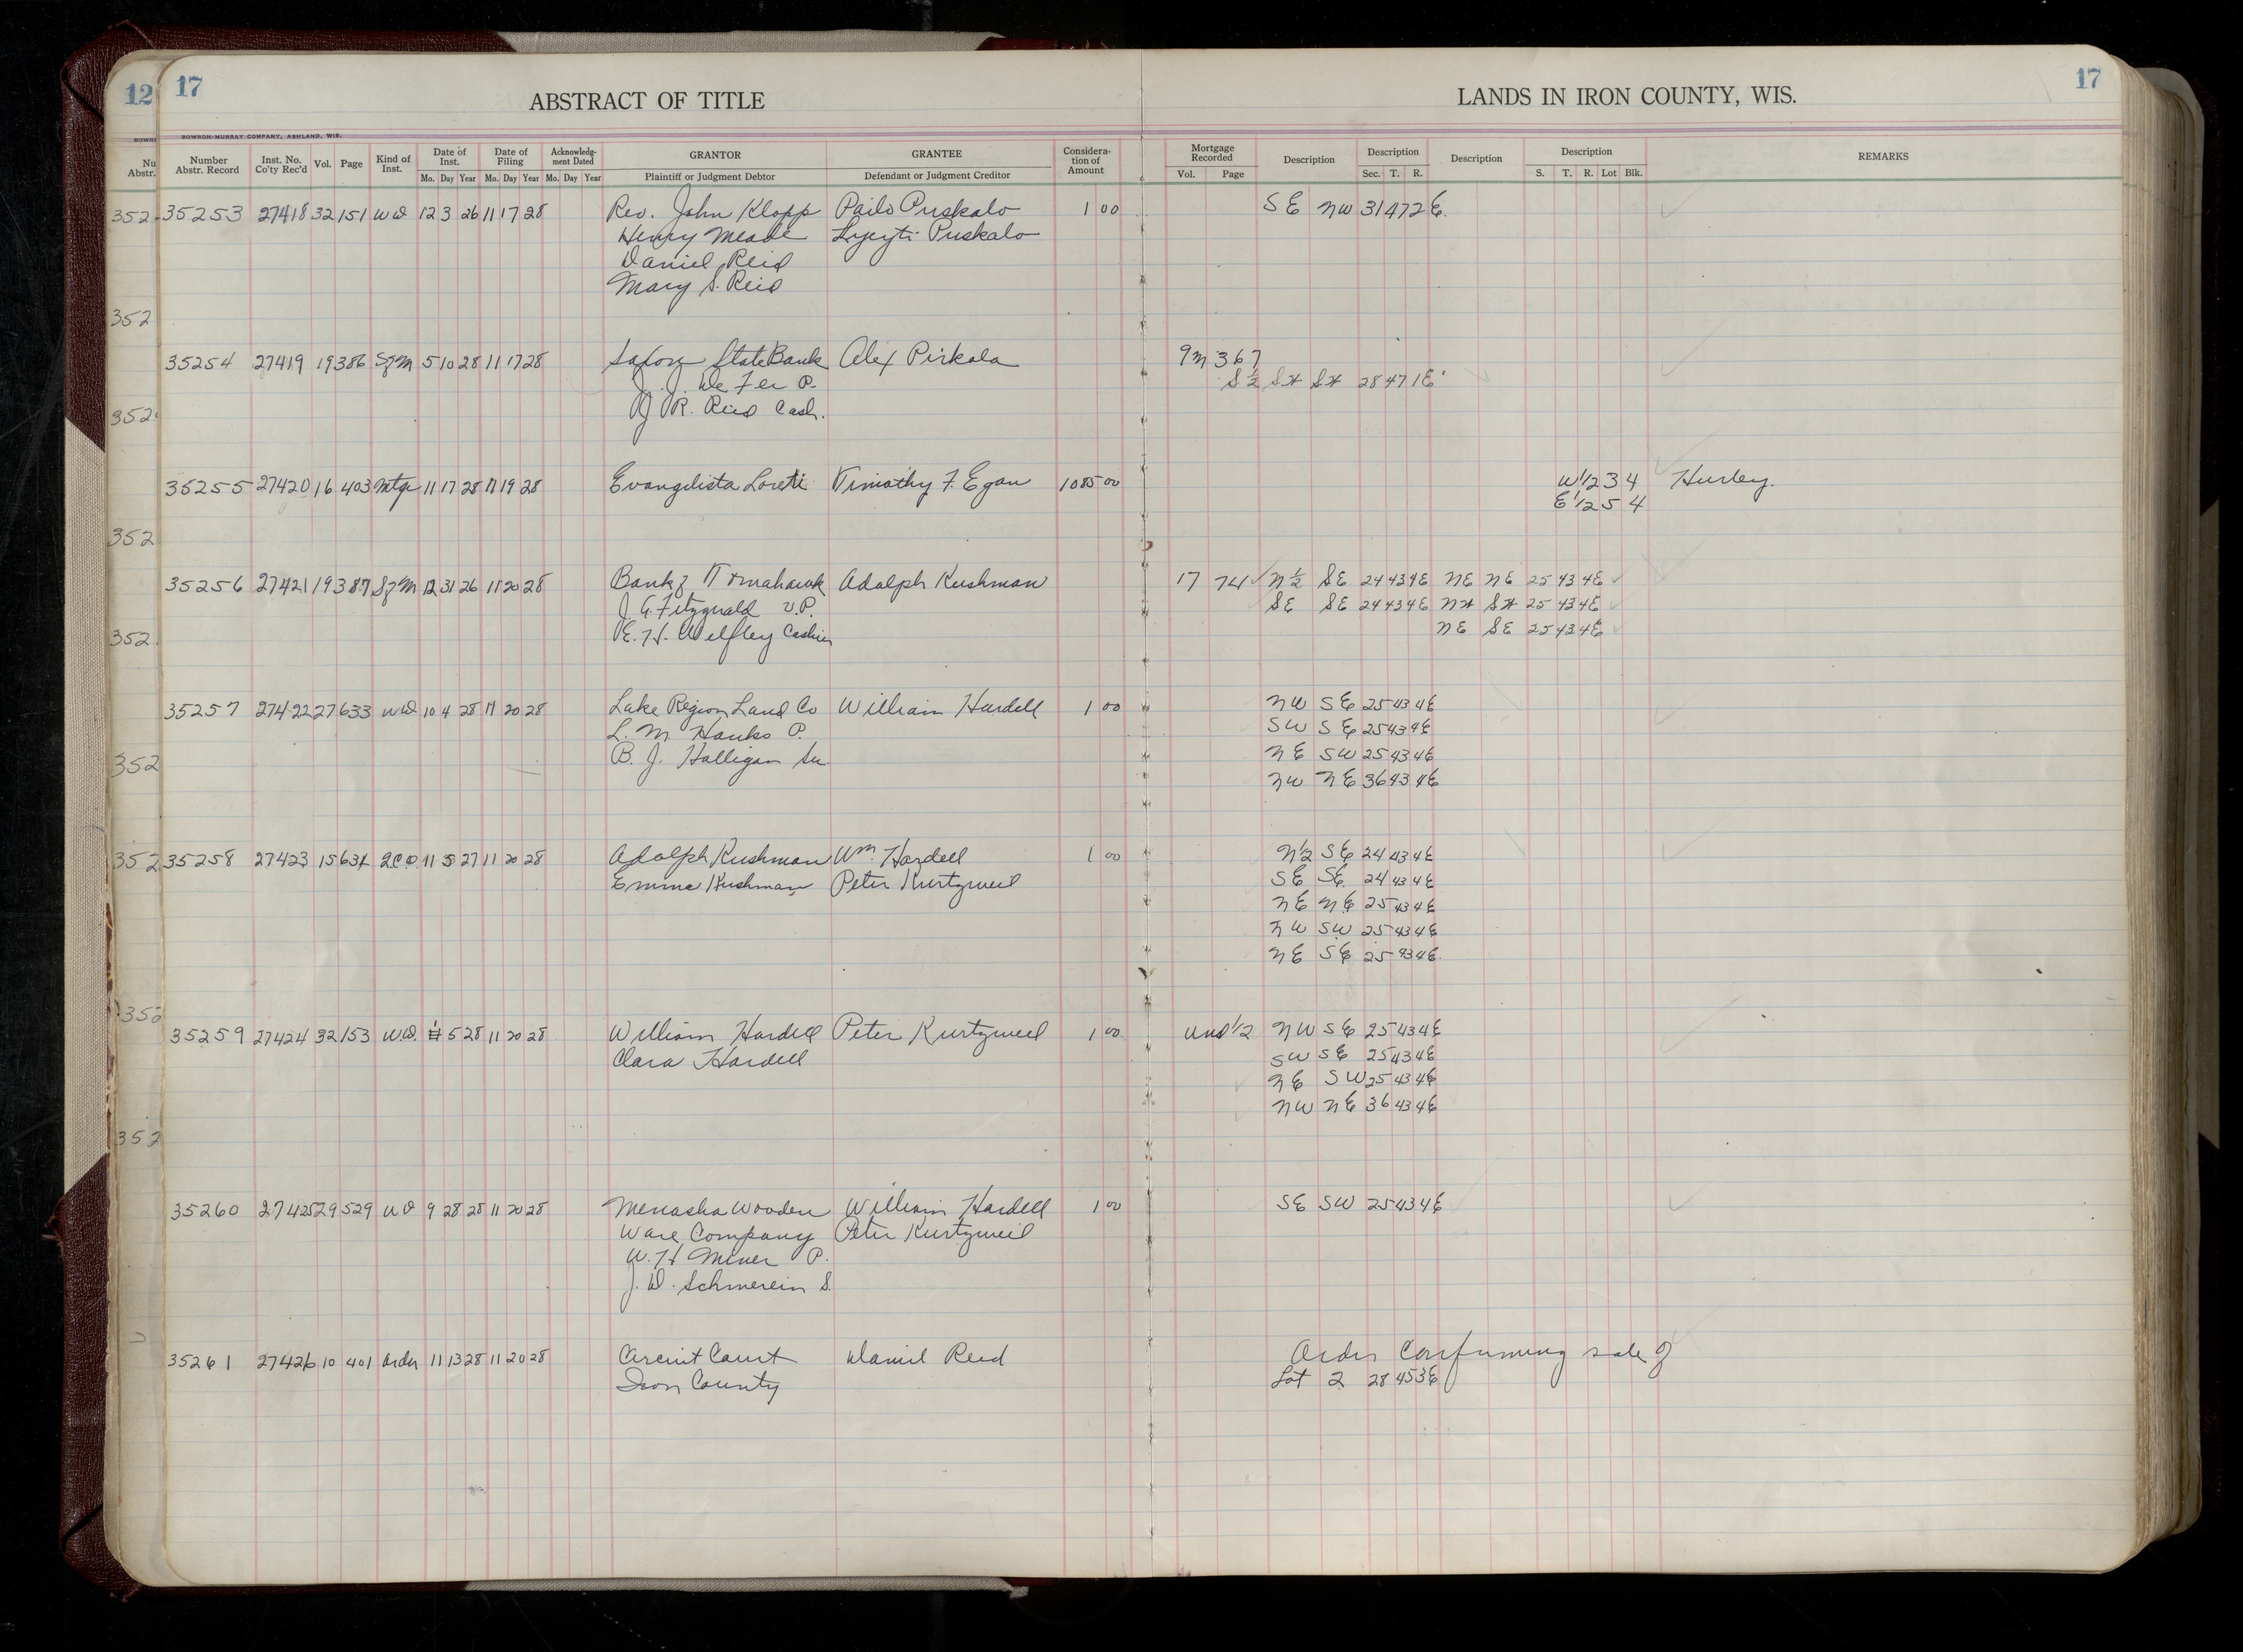 12 17 ABSTRACT OF TITLE LANDS IN IRON COUNTY, WIS. 17
BOWRON-MURRAY COMPANY, ASHLAND, WIS.
Number Abstr. Record Inst. No. Co'ty Rec'd Vol. Page Kind of Inst. Date of Inst. Mo. Day Year Date of Filing Mo. Day Year Acknowledg-ment Dated Mo. Day Year GRANTOR Plaintiff or Judgment Debtor GRANTEE Defendant or Judgment Creditor Considera-tion of Amount Mortgage Recorded Vol. Page Description Description Sec. T. R. Description Description S. T. R. Lot Blk. REMARKS
35253 27418 32 151 WD 12 3 26 11 17 28 Rev. John Klopp Pailo Puskalo 1 00 SE NW 31 47 2E.
Henry Meade Puskalo
Daniel Reid
Mary S. Reid
35254 27419 19 386 SfM 5 10 28 11 17 28 Saxon State Bank Alex Pirkola 9M 367
J. J. De Fer P. S½ S* S* 28 47 1E
J R. Reid Cash.
35255 27420 16 403 Mtge 11 17 28 11 19 28 Evangelista Loreti Timothy F. Egan 1085 00 W1/2 3 4 Hurley.
E1/2 5 4
35256 27421 19 387 SfM 12 31 26 11 20 28 Bank of Tomahawk Adolph Kushman 17 74 N½ SE 24 43 4E NE NE 25 43 4E
J. A. Fitzgerald V.P. SE SE 24 43 4E NW SW 25 43 4E
E. H. Welfley Cashier NE SE 25 43 4E
35257 27422 27 633 WD 10 4 28 11 20 28 Lake Region Land Co William Hardell 1 00 NW SE 25 43 4E
L. M. Hanks P. SW SE 25 43 4E
B. J. Halligan Sec. NE SW 25 43 4E
NW NE 36 43 4E
35258 27423 15 634 QCD 11 5 27 11 20 28 Adolph Kushman Wm. Hardell 1 00 N1/2 SE 24 43 4E
Emma Kushman Peter Kurtzweil SE SE 24 43 4E
NE NE 25 43 4E
NW SW 25 43 4E
NE SE 25 43 4E.
35259 27424 32 153 W.D. 11 5 28 11 20 28 William Hardell Peter Kurtzweil 1 00 Und 1/2 NW SE 25 43 4E
Clara Hardell SW SE 25 43 4E
NE SW 25 43 4E
NW NE 36 43 4E
35260 27425 29 529 WD 9 28 28 11 20 28 Menasha Wooden William Hardell 1 00 SE SW 25 43 4E
Ware Company Peter Kurtzweil
W. H Miner P.
J. D. Schmerein S.
35261 27426 10 401 Order 11 13 28 11 20 28 Circuit Court Daniel Reid Order Confirming sale of
Iron County Lot 2 28 45 3E